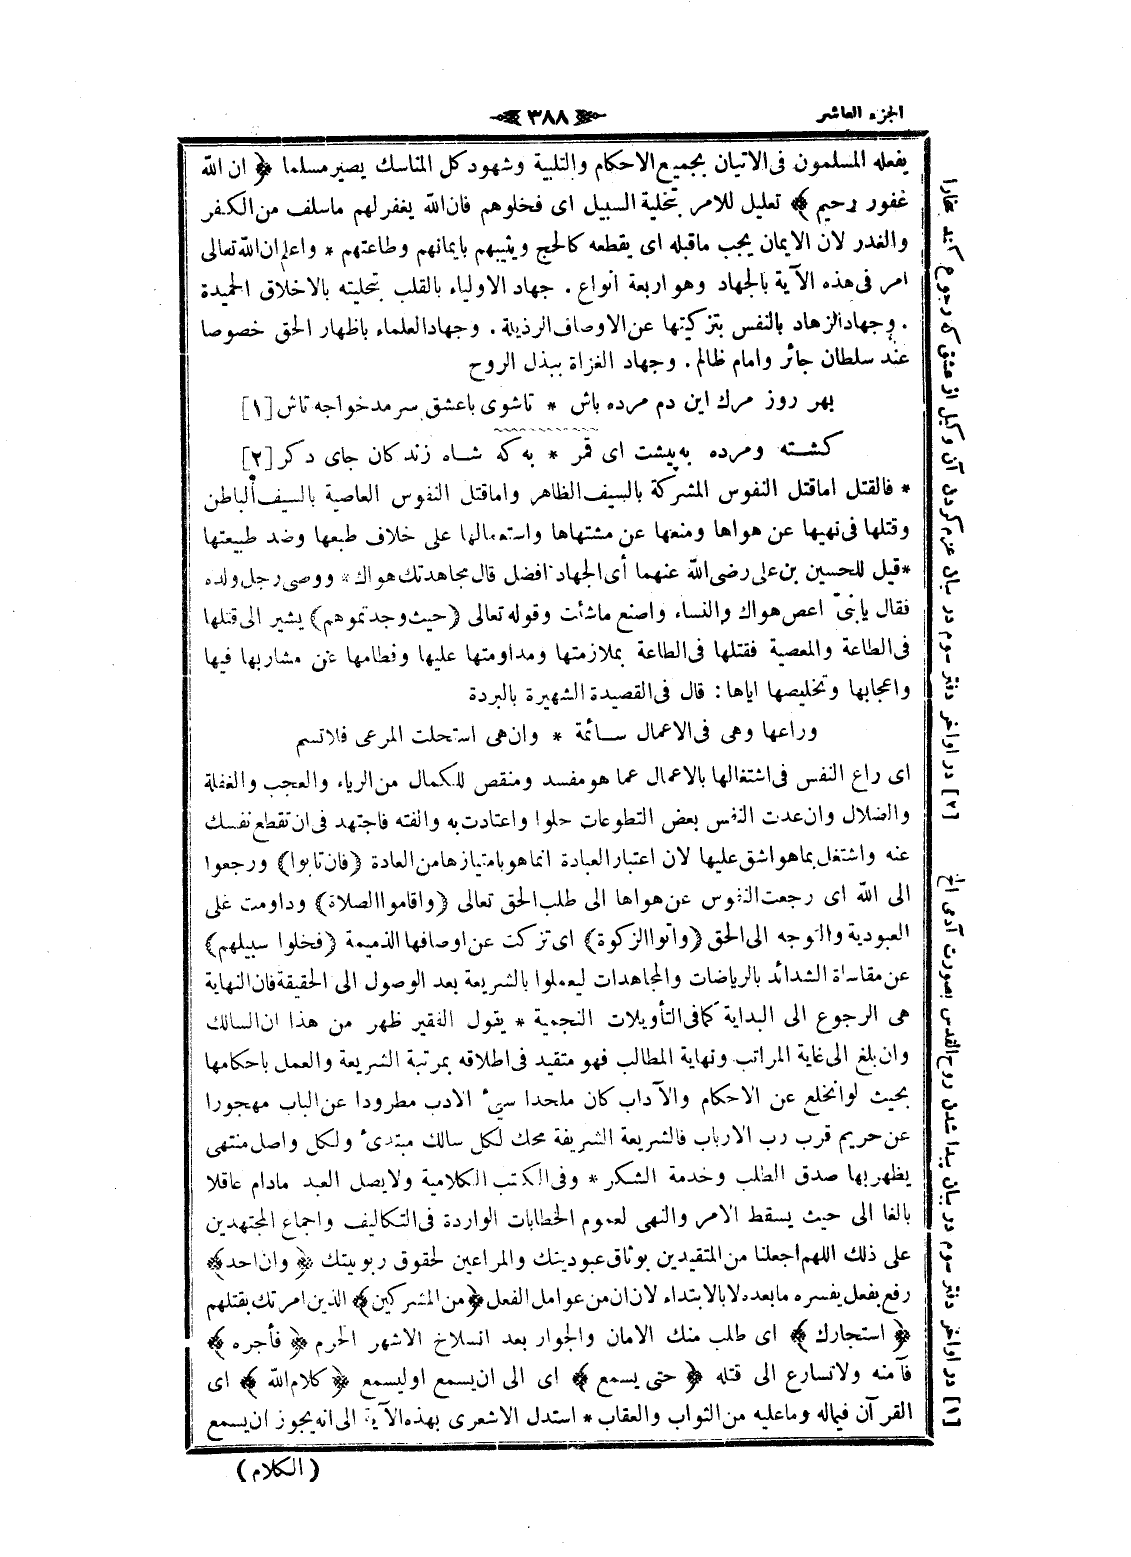 الجزء العاشر
٣٨٨
يفعله المسلمون فى الاتيان بجميع الاحكام والتلبية وشهود كل المناسك يصير مسلما ﴿ ان الله
غفور رحيم ﴾ تعليل للامر بتخلية السبيل اى فخلوهم فان الله يغفر لهم ماسلف من الكفر
والغدر لان الايمان يجب ماقبله اى يقطعه كالحج ويثيبهم بايمانهم وطاعتهم * واعلم ان الله تعالى
امر فى هذه الآية بالجهاد وهو اربعة أنواع . جهاد الاولياء بالقلب بتحليته بالاخلاق الحميدة
. وجهاد الزهاد بالنفس بتزكيتها عن الاوصاف الرذيلة . وجهاد العلماء باظهار الحق خصوصا
عند سلطان جائر وامام ظالم . وجهاد الغزاة ببذل الروح
بهر روز مرك اين دم مرده باش * تاشوى باعشق سرمد خواجه تاش [١]
كشته ومرده به پيشت اى قمر * به كه شاه زندكان جاى دكر [٢]
* فالقتل اماقتل النفوس المشركة بالسيف الظاهر واماقتل النفوس العاصية بالسيف الباطن
وقتلها فى نهيها عن هواها ومنعها عن مشتهاها واستعمالها على خلاف طبعها وضد طبيعتها
* قيل للحسين بن على رضى الله عنهما أى الجهاد افضل قال مجاهدتك هواك * ووصى رجل ولده
فقال يابنىّ اعص هواك والنساء واصنع ماشئت وقوله تعالى (حيث وجدتموهم) يشير الى قتلها
فى الطاعة والمعصية فقتلها فى الطاعة بملازمتها ومداومتها عليها وفطامها عن مشاربها فيها
واعجابها وتخليصها اياها : قال فى القصيدة الشهيرة بالبردة
وراعها وهى فى الاعمال سائمة * وان هى استحلت المرعى فلاتسم
اى راع النفس فى اشتغالها بالاعمال عما هو مفسد ومنقص للكمال من الرياء والعجب والغفلة
والضلال وان عدت النفس بعض التطوعات حلوا واعتادت به والفته فاجتهد فى ان تقطع نفسك
عنه واشتغل بماهو اشق عليها لان اعتبار العبادة انماهو بامتيازها من العادة (فان تابوا) ورجعوا
الى الله اى رجعت النفوس عن هواها الى طلب الحق تعالى (واقاموا الصلاة) وداومت على
العبودية والتوجه الى الحق (وآتوا الزكوة) اى تزكت عن اوصافها الذميمة (فخلوا سبيلهم)
عن مقاساة الشدائد بالرياضات والمجاهدات ليعملوا بالشريعة بعد الوصول الى الحقيقة فان النهاية
هى الرجوع الى البداية كمافى التأويلات النجمية * يقول الفقير ظهر من هذا ان السالك
وان بلغ الى غاية المراتب ونهاية المطالب فهو متقيد فى اطلاقه بمرتبة الشريعة والعمل باحكامها
بحيث لو انخلع عن الاحكام والآداب كان ملحدا سيئ الادب مطرودا عن الباب مهجورا
عن حريم قرب رب الارباب فالشريعة الشريفة محك لكل سالك مبتدئ ولكل واصل منتهى
يظهر بها صدق الطلب وخدمة الشكر * وفى الكتب الكلامية ولايصل العبد مادام عاقلا
بالغا الى حيث يسقط الامر والنهى لعموم الخطابات الواردة فى التكاليف واجماع المجتهدين
على ذلك اللهم اجعلنا من المتقيدين بوثاق عبوديتك والمراعين لحقوق ربوبيتك ﴿ وان احد ﴾
رفع بفعل يفسره مابعده لابالابتداء لان ان من عوامل الفعل ﴿ من المشركين ﴾ الذين امرتك بقتلهم
﴿ استجارك ﴾ اى طلب منك الامان والجوار بعد انسلاخ الاشهر الحرم ﴿ فأجره ﴾
فآمنه ولاتسارع الى قتله ﴿ حتى يسمع ﴾ اى الى ان يسمع اوليسمع ﴿ كلام الله ﴾ اى
القرآن فيماله وماعليه من الثواب والعقاب * استدل الاشعرى بهذه الآية الى انه يجوز ان يسمع
(الكلام)
[١] در اواخر دفتر سوم در بيان پيدا شدن روح القدس بصورت آدمى الخ
[٢] در اواخر دفتر سوم در بيان عزم كردن آن وكيل از عشق كه رجوع كند بخارا